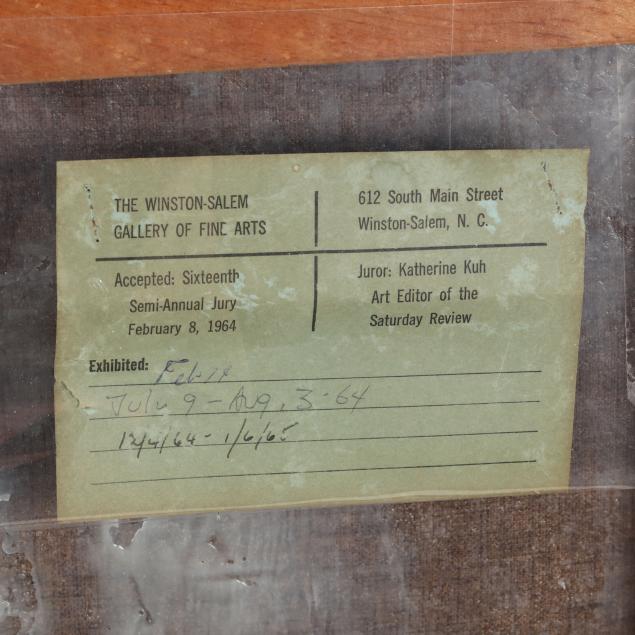 THE WINSTON-SALEM
GALLERY OF FINE ARTS
612 South Main Street
Winston-Salem, N. C.
Accepted: Sixteenth
Semi-Annual Jury
February 8, 1964
Juror: Katherine Kuh
Art Editor of the
Saturday Review
Exhibited: Feb
July 9 - Aug. 3-64
12/4/64 - 1/6/65